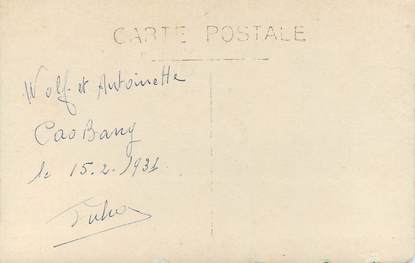 CARTE POSTALE
Wolf et Antoinette
CaoBang
le 15.2.1931